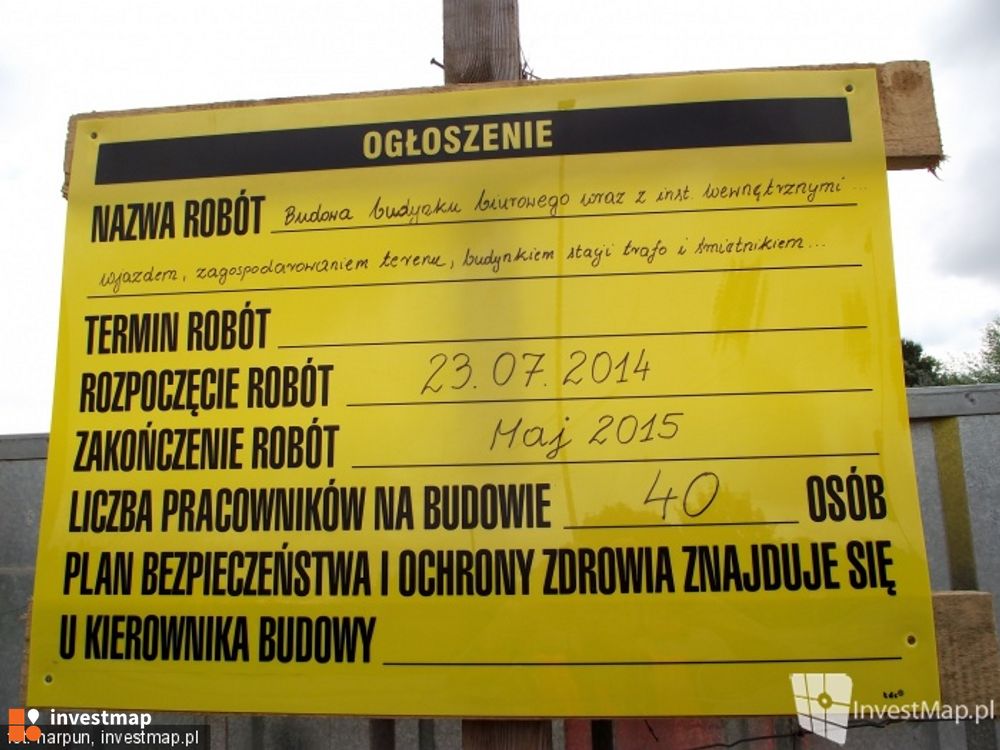 OGŁOSZENIE
NAZWA ROBÓT Budowa budynku biurowego wraz z inst. wewnętrznymi...
wjazdem, zagospodarowaniem terenu, budynkiem stacji trafo i śmietnikiem...
TERMIN ROBÓT
ROZPOCZĘCIE ROBÓT 23.07.2014
ZAKOŃCZENIE ROBÓT Maj 2015
LICZBA PRACOWNIKÓW NA BUDOWIE 40 OSÓB
PLAN BEZPIECZEŃSTWA I OCHRONY ZDROWIA ZNAJDUJE SIĘ
U KIEROWNIKA BUDOWY
investmap
fot. harpun, investmap.pl
InvestMap.pl